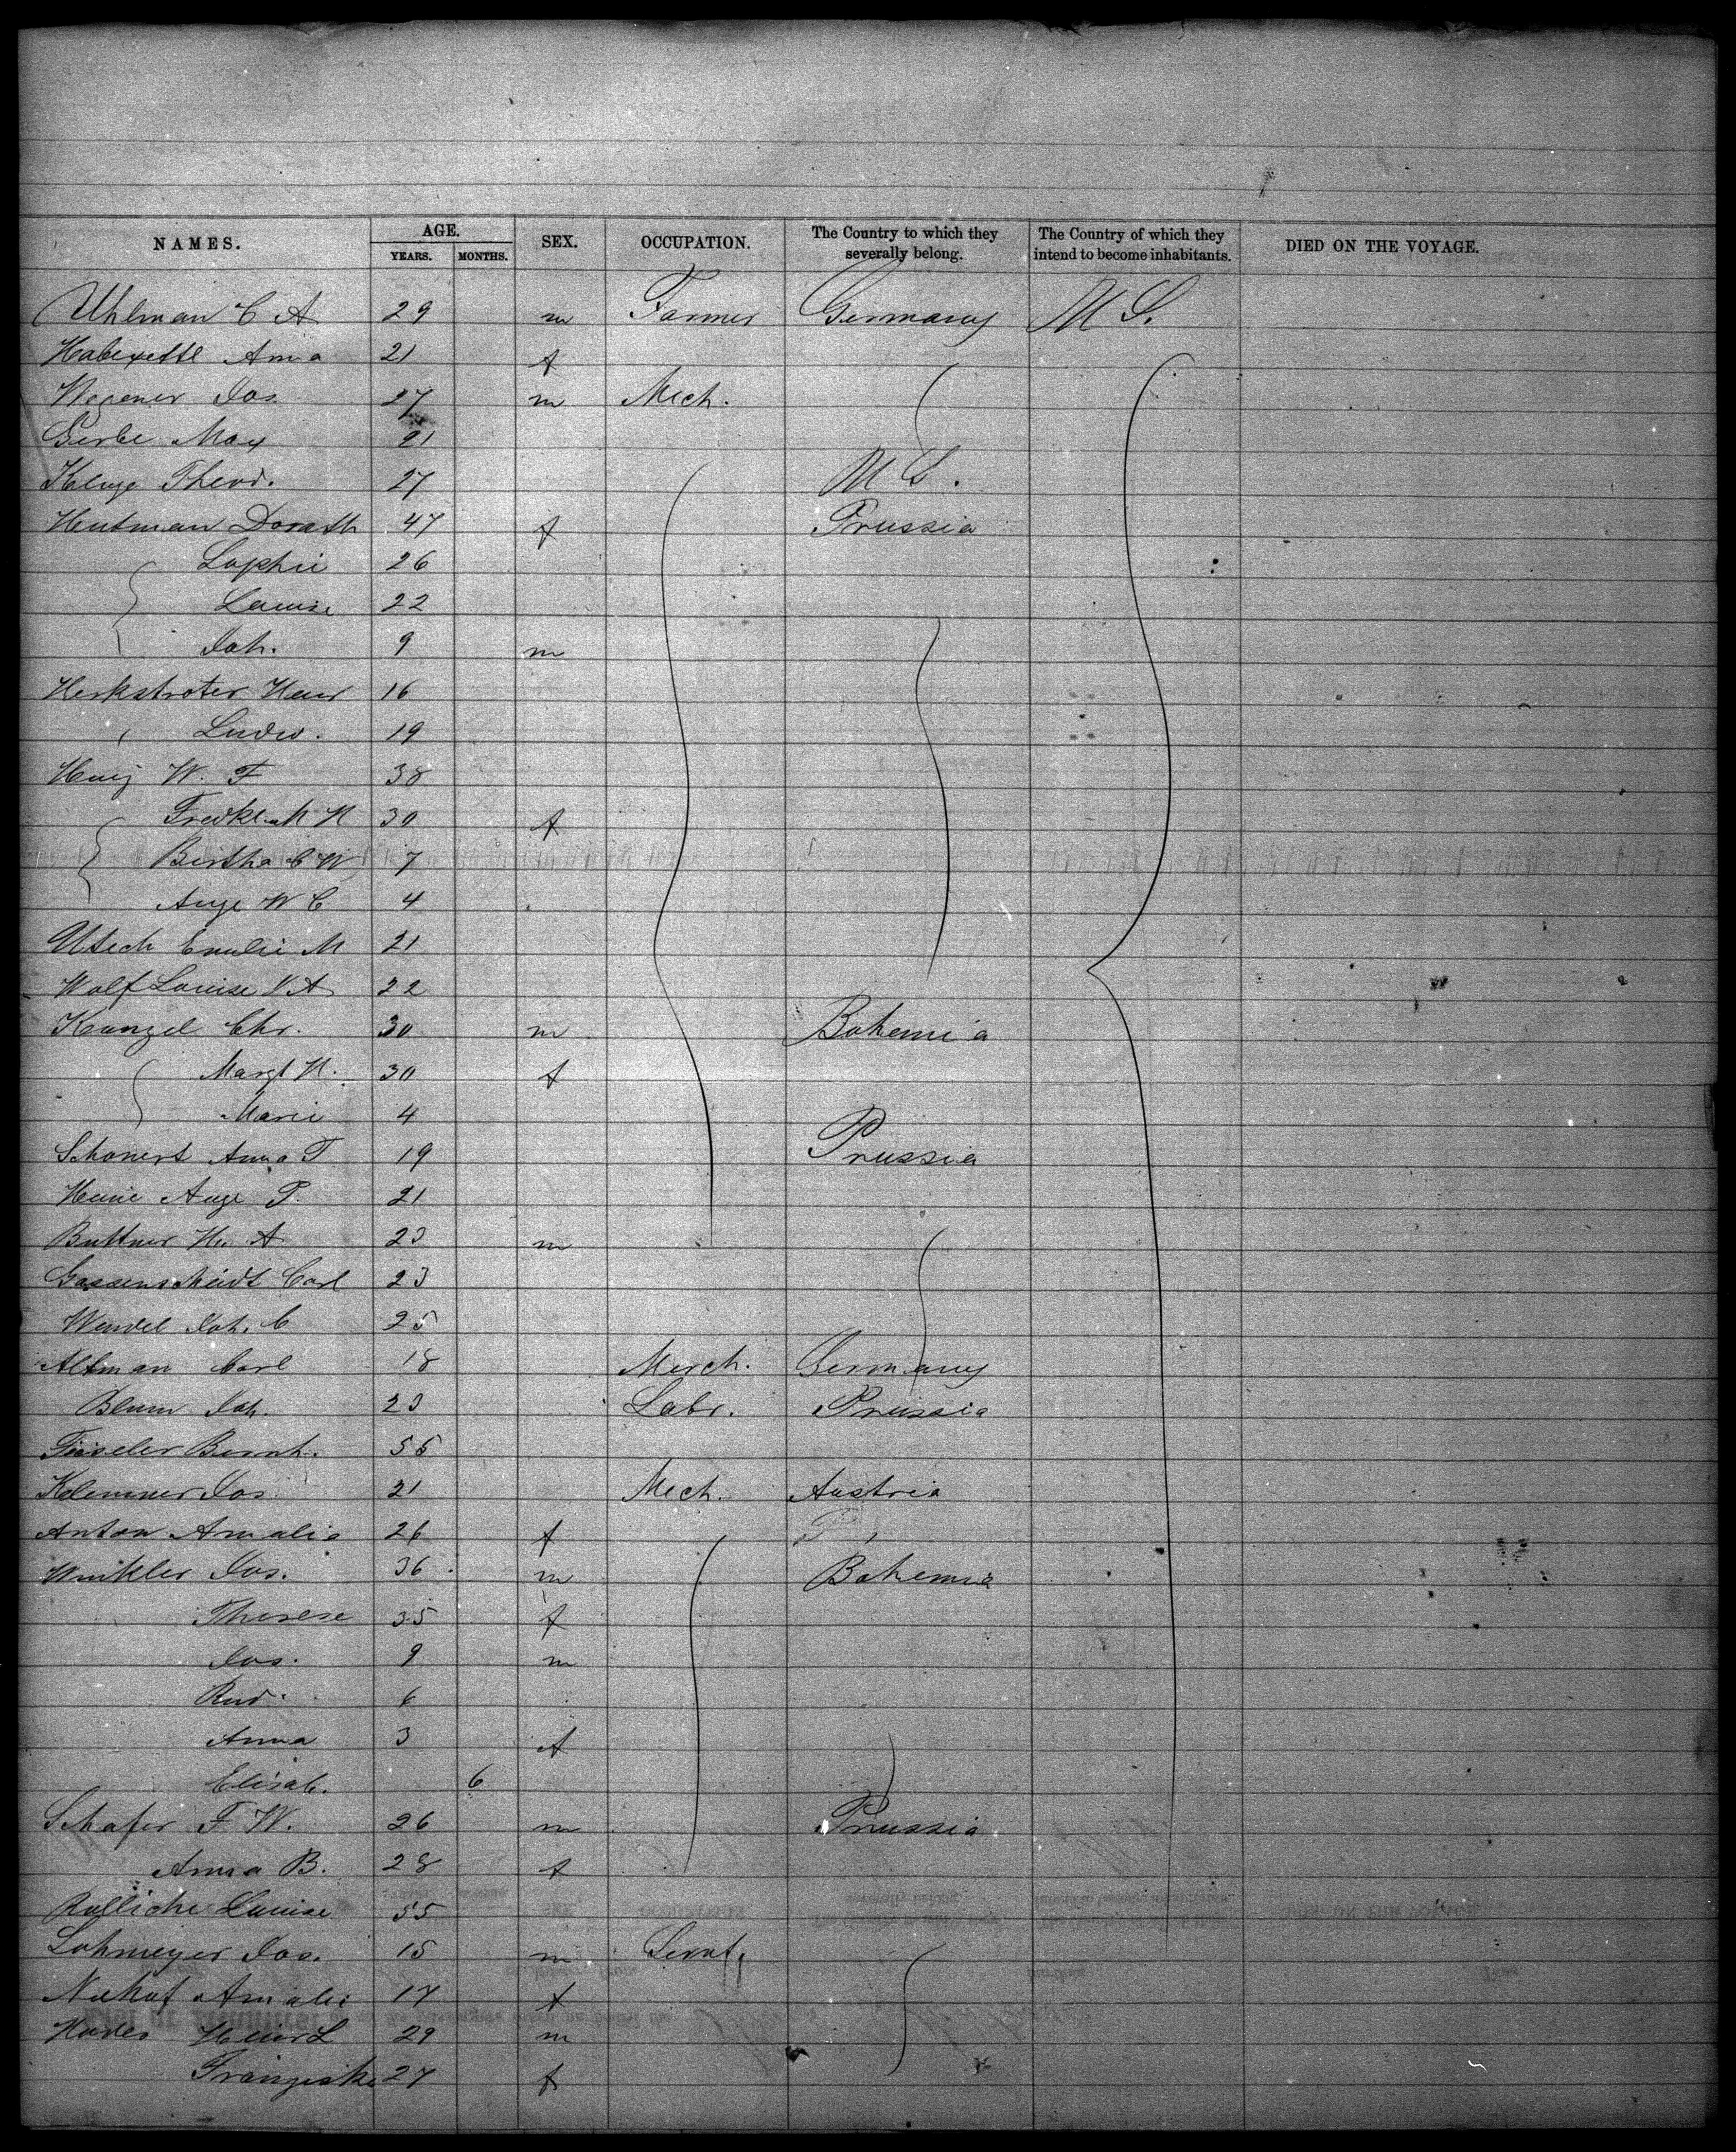 NAMES. AGE. YEARS. MONTHS. SEX. OCCUPATION. The Country to which they severally belong. The Country of which they intend to become inhabitants. DIED ON THE VOYAGE.
Uhlman C A 29 m Farmer Germany U S.
Anna 21 f
Wegener Jos. 27 m Mech.
Gerbe Max 21
Kluge Theod. 27 U S.
Hutman Dorath 47 f Prussia
Sophie 26
Louise 22
Joh. 9 m
Herkstroter Heinr 16
Ludw. 19
W. F 38
30 f
Bertha C W 7
Auge W C 4
Utech Emilie M 21
Wolf Louise 22
Kunzel Chr. 30 m Bohemia
Margt 30 f
Marie 4
Schonert Anna T 19 Prussia
Auge P. 21
Buttner A 23 m
Gassenscheidt Carl 23
Wendel Joh. C 25
Altman Carl 18 Merch. Germany
Blum Joh. 23 Labr. Prussia
Bernh. 56
Klemmer Jos. 21 Mech. Austria
Anton Amalie 26 f
Winkler Jos. 36 m Bohemia
Therese 35 f
Jos. 9 m
Rud. 6
Anna 3 f
Elisab. 6
Schafer F W. 26 m Prussia
Anna B. 28 f
Louise 55
Lohmeyer Jos. 15 m Servt
Amalie 17 f
Heinr L 29 m
Franziska 27 f